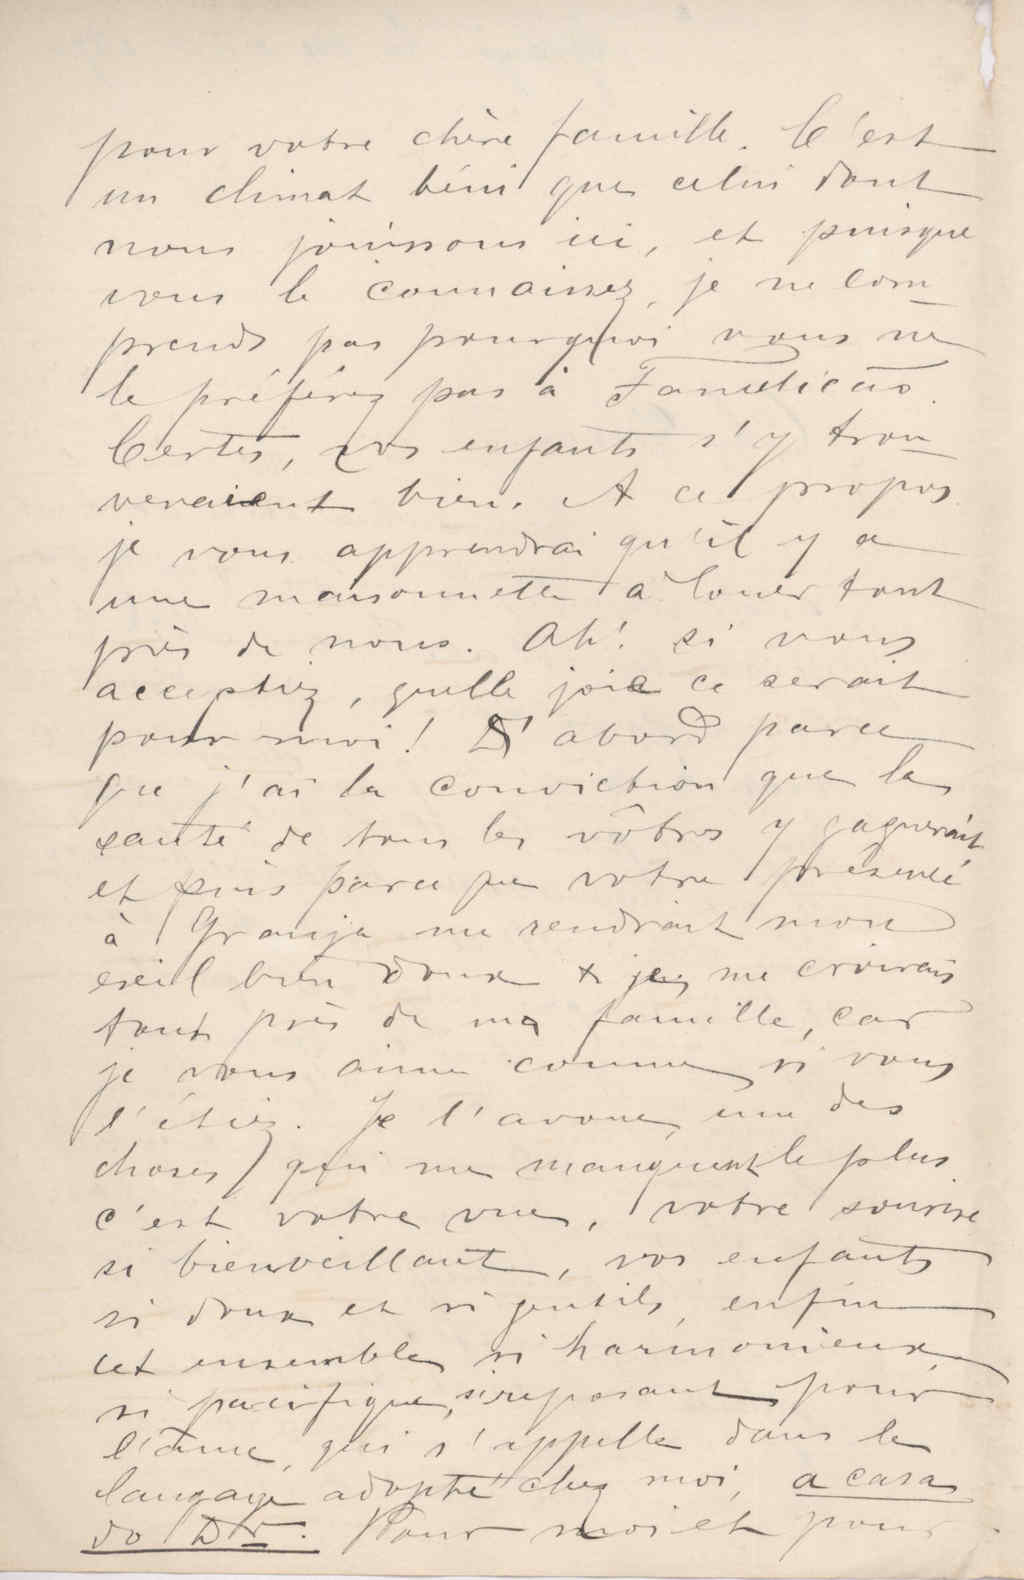 pour votre chère famille. C'est
un climat béni que celui dont
nous jouissons ici, et puisque
vous le connaissez, je ne com-
prends pas pourquoi vous ne
le préférez pas à Famelicão.
Certes, vos enfants s'y trou-
veraient bien. A ce propos
je vous apprendrai qu'il y a
une maisonnette à louer tout
près de nous. Ah! si vous
acceptiez, quelle joie ce serait
pour moi! D'abord parce
que j'ai la conviction que la
santé de tous les vôtres y gagnerait
et puis parce que votre présence
à Granja me rendrait mon
exil bien doux & je me croirais
tout près de ma famille, car
je vous aime comme si vous
l'étiez. Je l'avoue, une des
choses qui me manquent le plus
c'est votre vue, votre sourire
si bienveillant, vos enfants
si doux et si gentils, enfin
cet ensemble si harmonieux,
si pacifique, si reposant pour
l'âme, qui s'appelle dans le
langage adopté chez moi, a casa
do Dr. Pour moi et pour